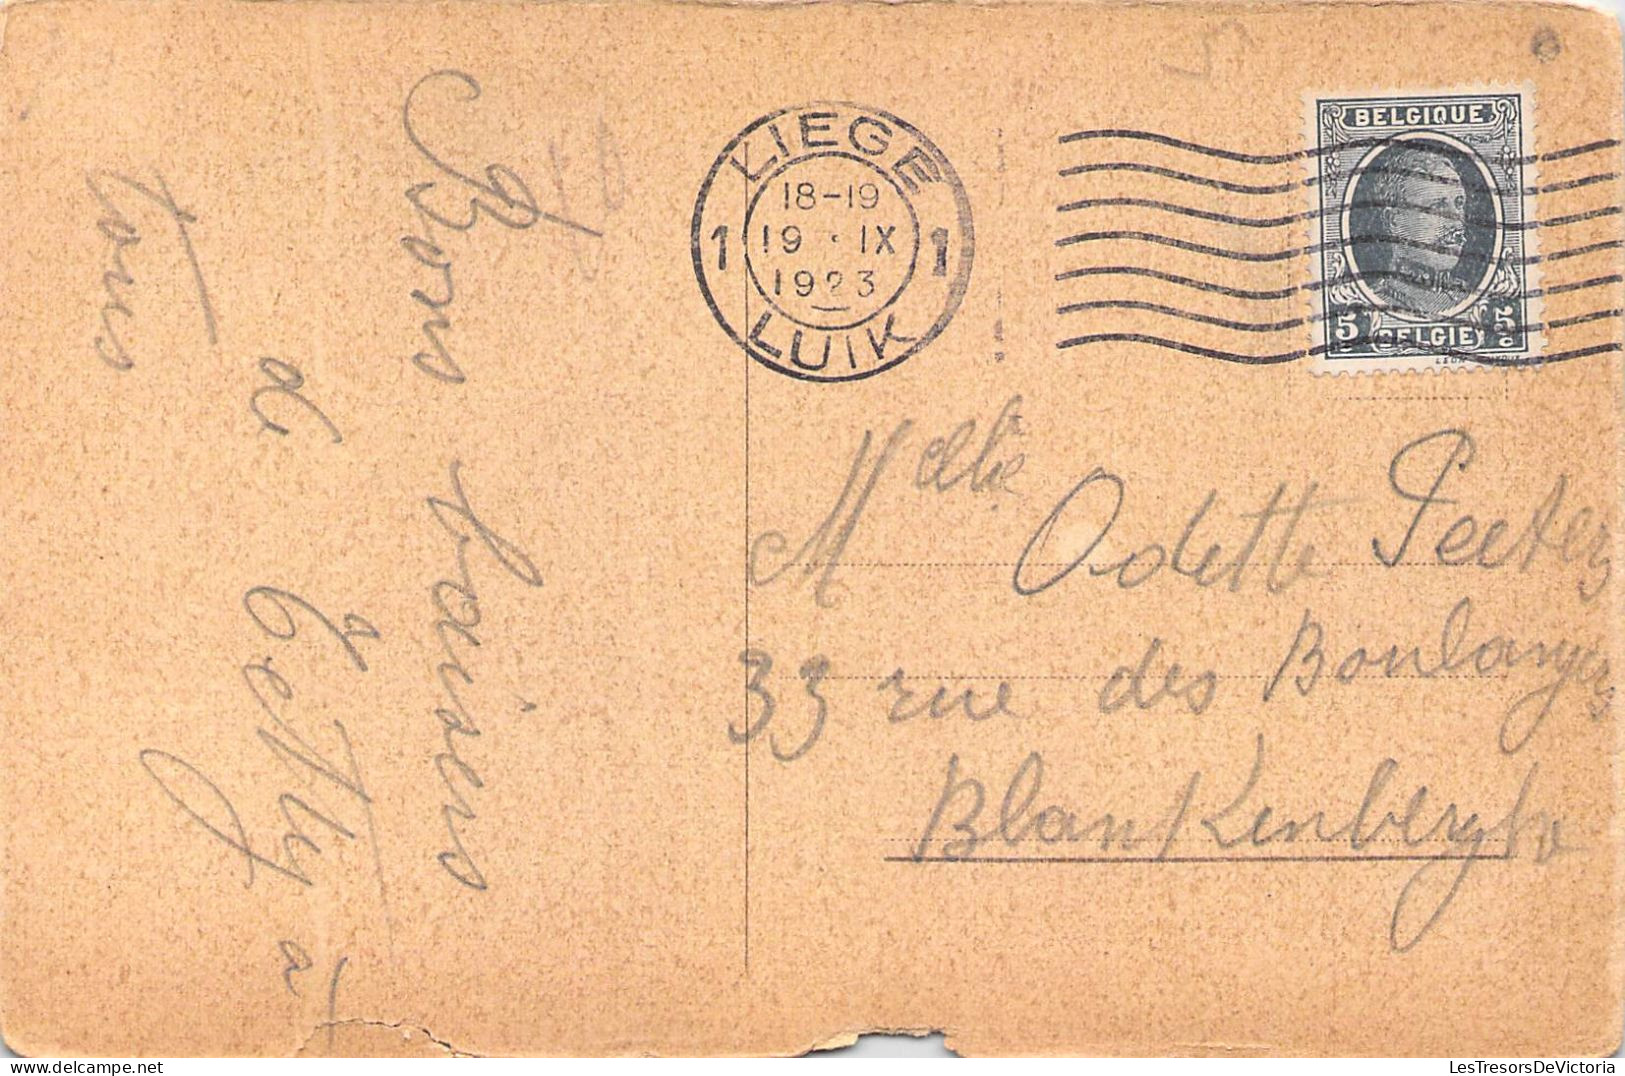 Bons baisers
de
à
tous
LIEGE
18-19
1 19 · IX 1
1923
LUIK
BELGIQUE
5 BELGIE
Melle Odette Peeters
33 rue des Boulangers
Blankenberghe
LesTresorsDeVictoria